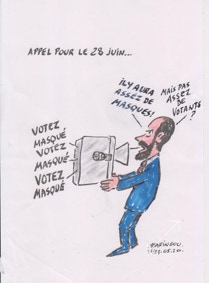 APPEL POUR LE 28 JUIN...
IL Y AURA
ASSEZ DE
MASQUES!
MAIS PAS
ASSEZ
DE
VOTANTS
?
VOTEZ
MASQUÉ
VOTEZ
MASQUÉ
VOTEZ
MASQUÉ